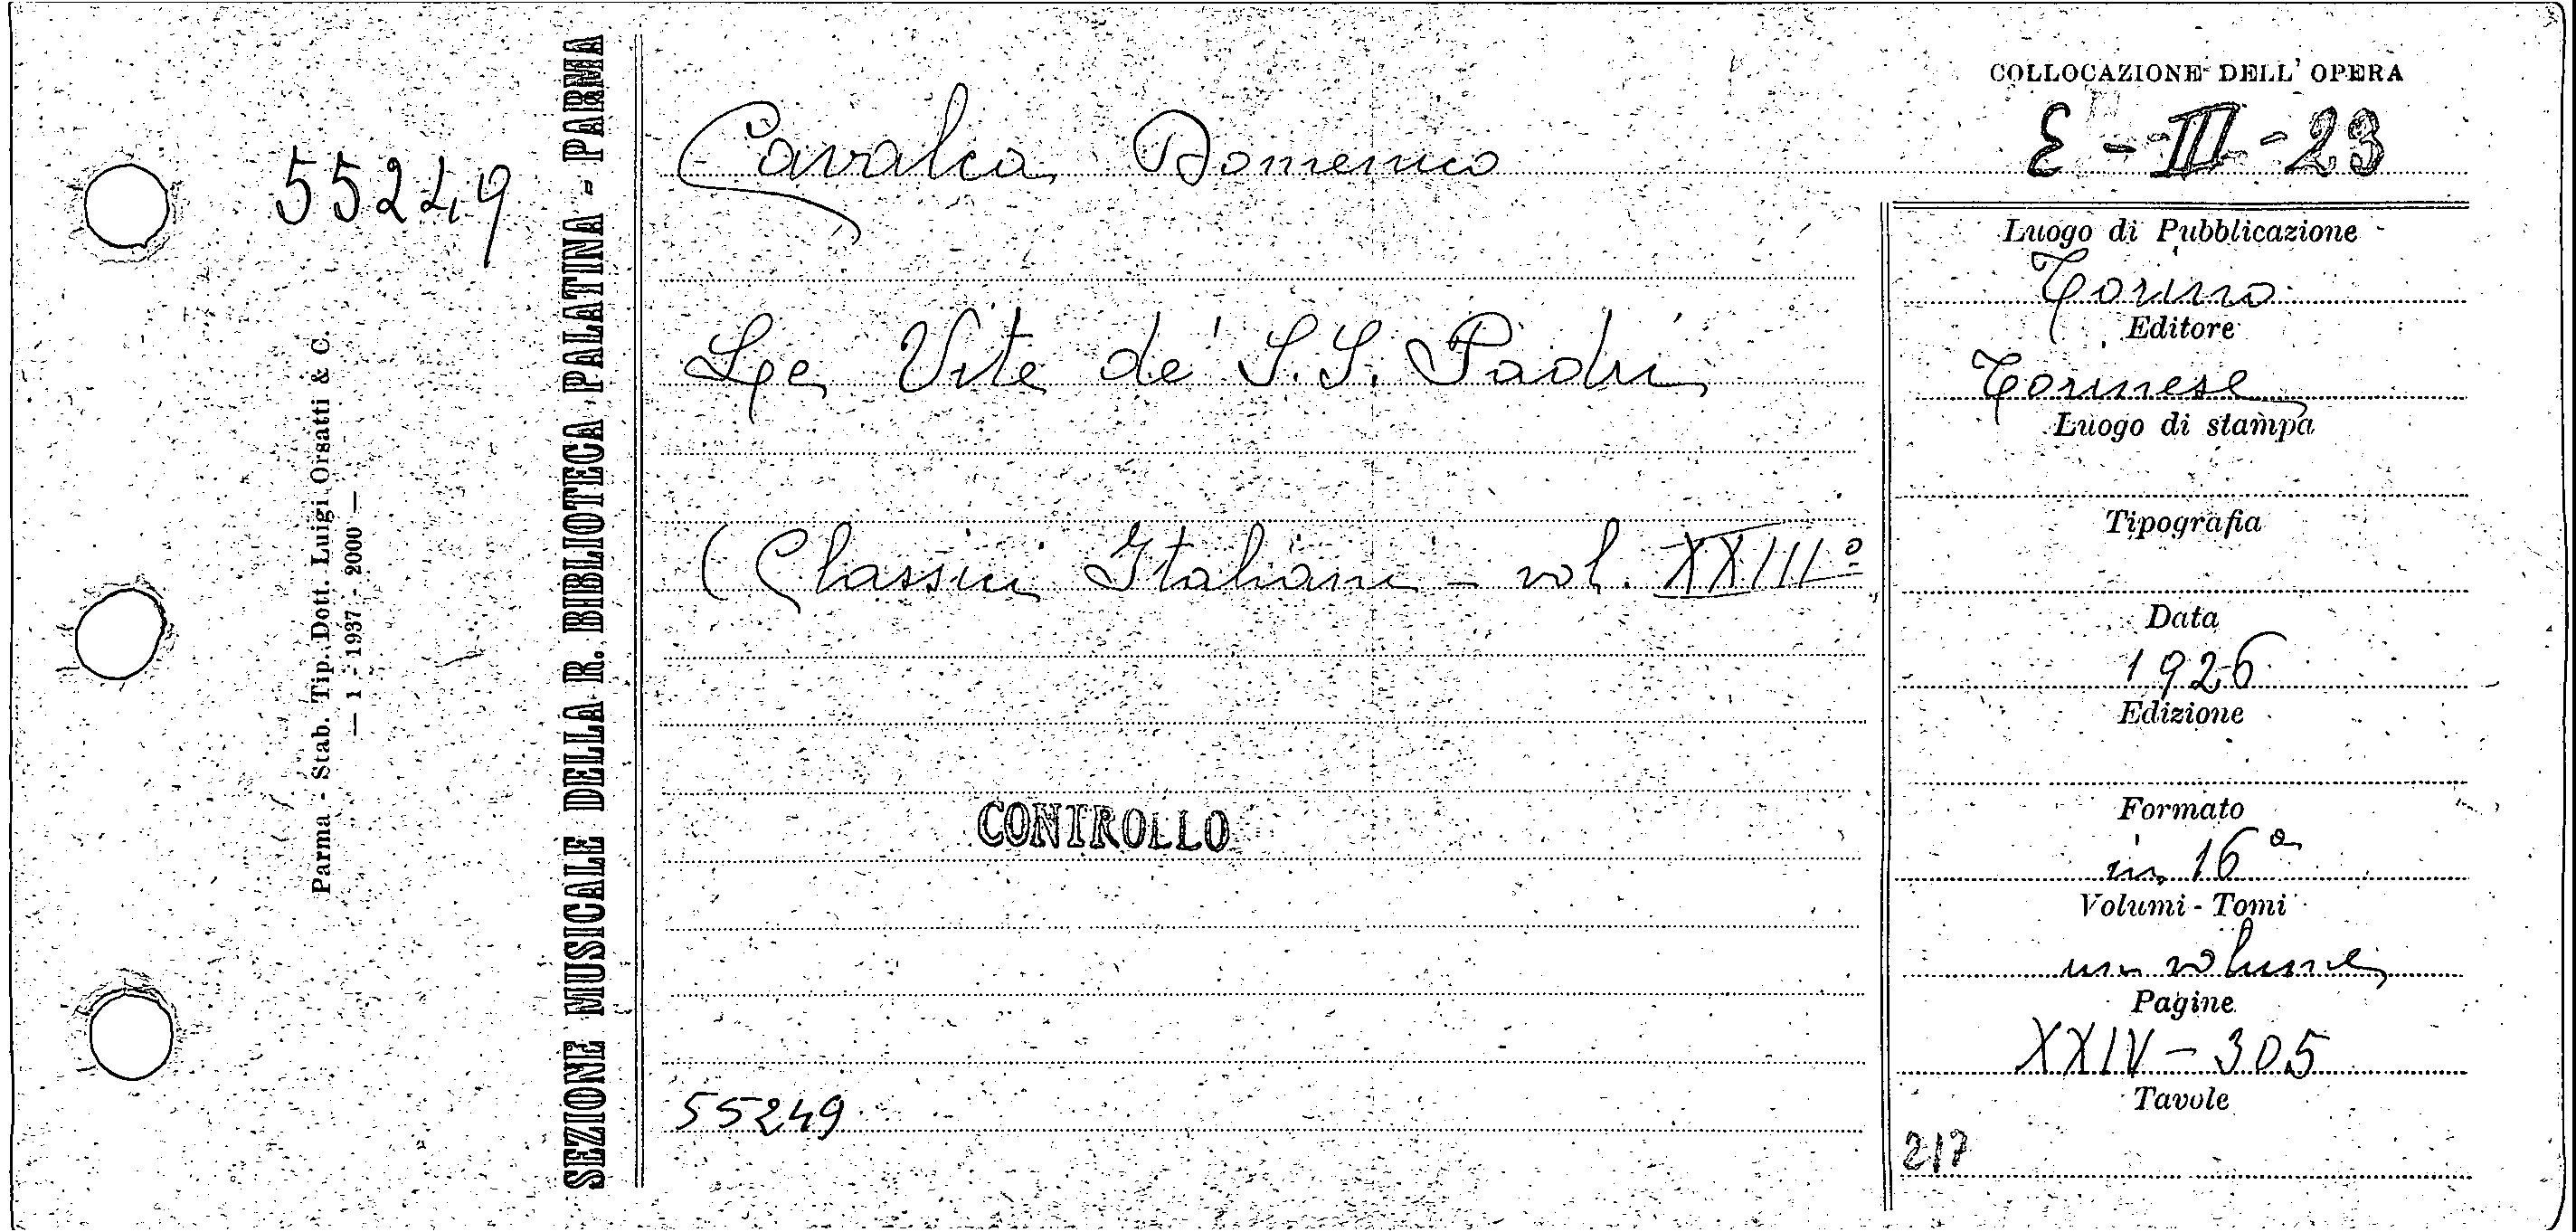 55249
Parma - Stab. Tip. Dott. Luigi Orsatti & C.
— 1 - 1937 - 2000 —
SEZIONE MUSICALE DELLA R. BIBLIOTECA PALATINA - PARMA
Cavalca Domenico
Le Vite de' S.S. Padri
(Classici Italiani - vol. XXIIIº
CONTROLLO
55249
COLLOCAZIONE DELL' OPERA
E - III - 23
Luogo di Pubblicazione
Torino
Editore
Torinese
Luogo di stampa
Tipografia
Data
1926
Edizione
Formato
in 16º
Volumi - Tomi
un volume
Pagine
XXIV - 305
Tavole
217